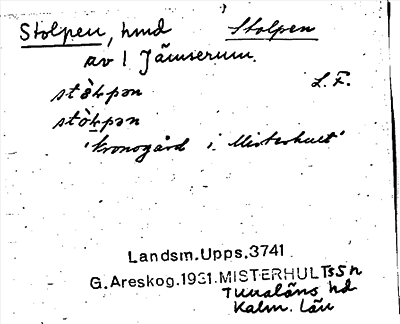 Stolpen, hmd Stolpen
av 1 Jämserum.
L. F.
'kronogård i Misterhult'
Landsm.Upps.3741
G.Areskog.1931.MISTERHULTS sn
Tunaläns hd
Kalm. län